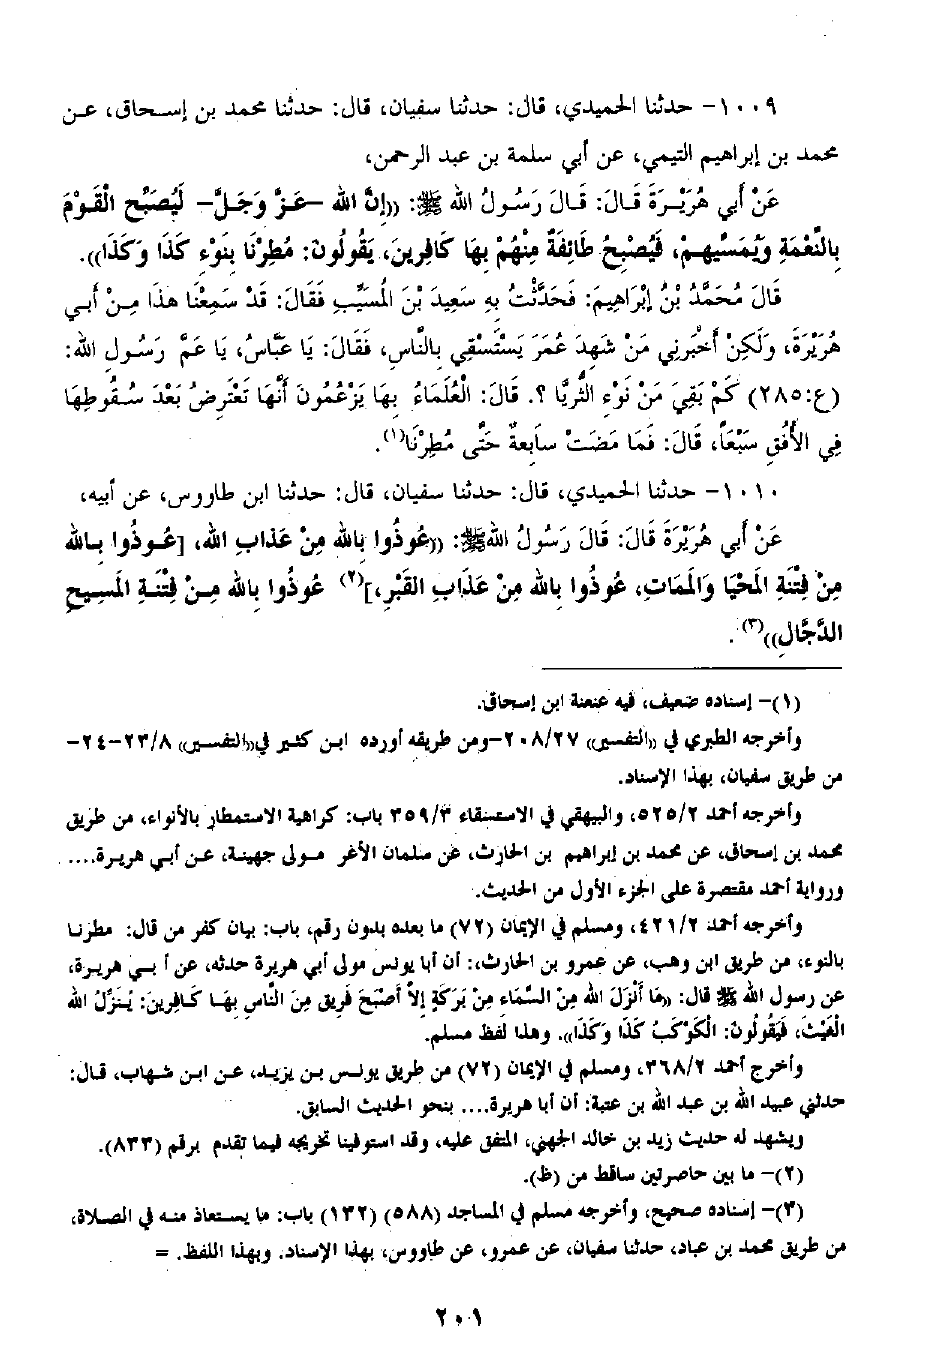 ١٠٠٩- حدثنا الحميدي، قال: حدثنا سفيان، قال: حدثنا محمد بن إسحاق، عن
محمد بن إبراهيم التيمي، عن أبي سلمة بن عبد الرحمن،
عَنْ أَبِي هُرَيْرَةَ قَالَ: قَالَ رَسُولُ اللهِ ﷺ: ((إِنَّ اللهَ -عَزَّ وَجَلَّ- لَيُصَبِّحُ الْقَوْمَ
بِالنِّعْمَةِ وَيُمَسِّيهِمْ، فَيُصْبِحُ طَائِفَةٌ مِنْهُمْ بِهَا كَافِرِينَ، يَقُولُونَ: مُطِرْنَا بِنَوْءِ كَذَا وَكَذَا)).
قَالَ مُحَمَّدُ بْنُ إِبْرَاهِيمَ: فَحَدَّثْتُ بِهِ سَعِيدَ بْنَ الْمُسَيَّبِ فَقَالَ: قَدْ سَمِعْنَا هذَا مِنْ أَبِي
هُرَيْرَةَ، وَلَكِنْ أَخْبَرَنِي مَنْ شَهِدَ عُمَرَ يَسْتَسْقِي بِالنَّاسِ، فَقَالَ: يَا عَبَّاسُ، يَا عَمَّ رَسُولِ اللهِ:
(ع:٢٨٥) كَمْ بَقِيَ مَنْ نَوْءِ الثُّرَيَّا ؟. قَالَ: الْعُلَمَاءُ بِهَا يَزْعُمُونَ أَنَّهَا تَعْتَرِضُ بَعْدَ سُقُوطِهَا
فِي الأُفُقِ سَبْعاً، قَالَ: فَمَا مَضَتْ سَابِعةٌ حَتَّى مُطِرْنَا(١).
١٠١٠- حدثنا الحميدي، قال: حدثنا سفيان، قال: حدثنا ابن طاووس، عن أبيه،
عَنْ أَبِي هُرَيْرَةَ قَالَ: قَالَ رَسُولُ اللهِ ﷺ: ((عُوذُوا بِاللهِ مِنْ عَذَابِ اللهِ، [عُوذُوا بِاللهِ
مِنْ فِتْنَةِ الْمَحْيَا وَالْمَمَاتِ، عُوذُوا بِاللهِ مِنْ عَذَابِ القَبْرِ،](٢) عُوذُوا بِاللهِ مِنْ فِتْنَةِ الْمَسِيحِ
الدَّجَّالِ))(٣).
(١)- إسناده ضعيف، فيه عنعنة ابن إسحاق.
وأخرجه الطبري في ((التفسير)) ٢٠٨/٢٧-ومن طريقه أورده ابن كثير في((التفسير)) ٢٣/٨-٢٤-
من طريق سفيان، بهذا الإسناد.
وأخرجه أحمد ٥٢٥/٢، والبيهقي في الاستسقاء ٣٥٩/٣ باب: كراهية الاستمطار بالأنواء، من طريق
محمد بن إسحاق، عن محمد بن إبراهيم بن الحارث، عن سلمان الأغر مولى جهينة، عن أبي هريرة....
ورواية أحمد مقتصرة على الجزء الأول من الحديث.
وأخرجه أحمد ٤٢١/٢، ومسلم في الإيمان (٧٢) ما بعده بدون رقم، باب: بيان كفر من قال: مطرنا
بالنوء، من طريق ابن وهب، عن عمرو بن الحارث،: أن أبا يونس مولى أبي هريرة حدثه، عن أبي هريرة،
عن رسول الله ﷺ قال: ((مَا أَنْزَلَ اللهُ مِنَ السَّمَاءِ مِنْ بَرَكَةٍ إِلاَّ أَصْبَحَ فَرِيقٌ مِنَ النَّاسِ بِهَا كَافِرِينَ: يُنَزِّلُ اللهُ
الْغَيْثَ، فَيَقُولُونَ: الْكَوْكَبُ كَذَا وَكَذَا)). وهذا لفظ مسلم.
وأخرج أحمد ٣٦٨/٢، ومسلم في الإيمان (٧٢) من طريق يونس بن يزيد، عن ابن شهاب، قال:
حدثني عبيد الله بن عبد الله بن عتبة: أن أبا هريرة.... بنحو الحديث السابق.
ويشهد له حديث زيد بن خالد الجهني، المتفق عليه، وقد استوفينا تخريجه فيما تقدم برقم (٨٣٣).
(٢)- ما بين حاصرتين ساقط من (ظ).
(٣)- إسناده صحيح، وأخرجه مسلم في المساجد (٥٨٨) (١٣٢) باب: ما يستعاذ منه في الصلاة،
من طريق محمد بن عباد، حدثنا سفيان، عن عمرو، عن طاووس، بهذا الإسناد. وبهذا اللفظ. =
٢٠١